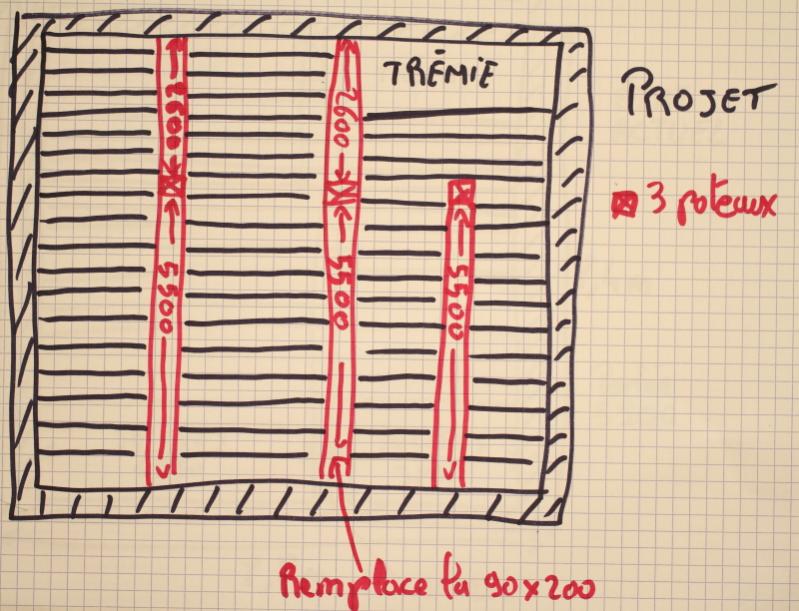 TRÉMIE
PROJET
3 poteaux
2600
2600
5500
5500
5500
Remplace la 90x200